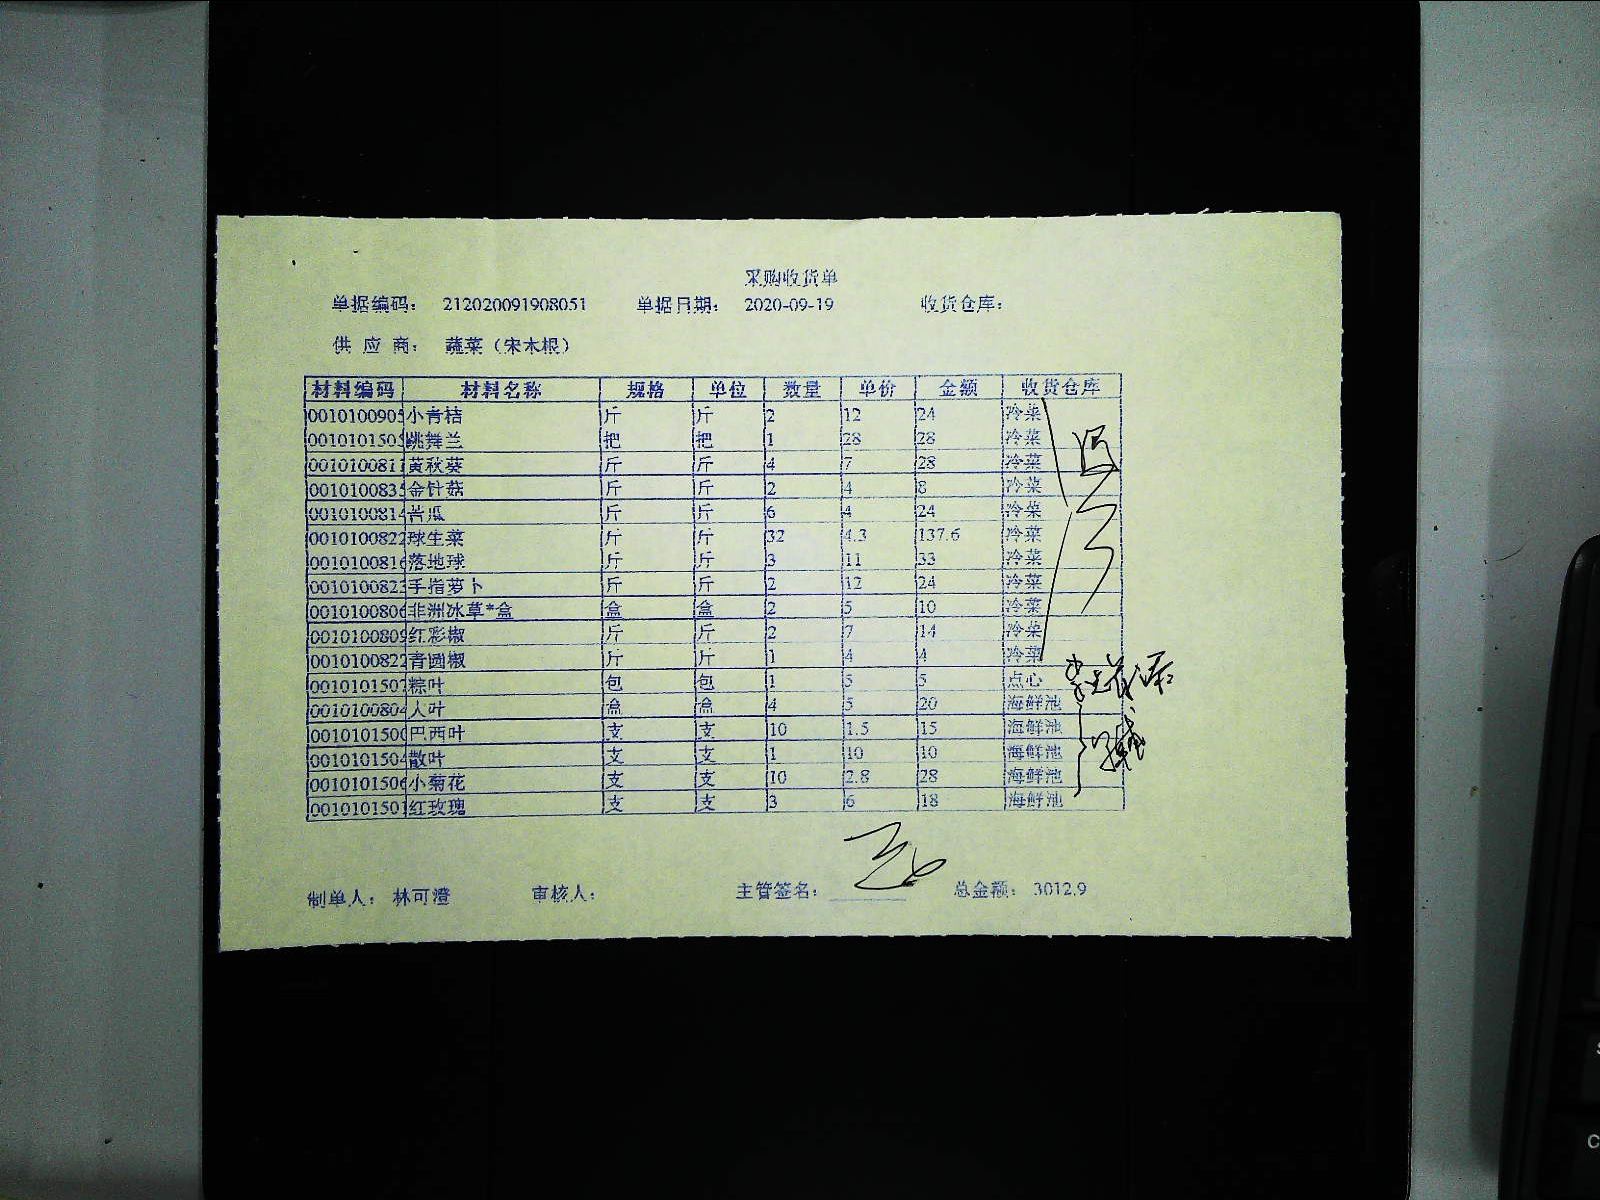 采购收货单
单据编码： 212020091908051 单据日期： 2020-09-19 收货仓库：
供 应 商： 蔬菜（宋木根）
材料编码 材料名称 规格 单位 数量 单价 金额 收货仓库
0010100905 小青桔 斤 斤 2 12 24 冷菜
0010101505 跳舞兰 把 把 1 28 28 冷菜
0010100811 黄秋葵 斤 斤 4 7 28 冷菜
0010100835 金针菇 斤 斤 2 4 8 冷菜
0010100814 苦瓜 斤 斤 6 4 24 冷菜
0010100822 球生菜 斤 斤 32 4.3 137.6 冷菜
0010100816 落地球 斤 斤 3 11 33 冷菜
0010100823 手指萝卜 斤 斤 2 12 24 冷菜
0010100806 非洲冰草*盒 盒 盒 2 5 10 冷菜
0010100809 红彩椒 斤 斤 2 7 14 冷菜
0010100822 青圆椒 斤 斤 1 4 4 冷菜
0010101507 粽叶 包 包 1 5 5 点心
0010100804 大叶 盒 盒 4 5 20 海鲜池
0010101500 巴西叶 支 支 10 1.5 15 海鲜池
0010101504 散叶 支 支 1 10 10 海鲜池
0010101506 小菊花 支 支 10 2.8 28 海鲜池
0010101501 红玫瑰 支 支 3 6 18 海鲜池
制单人： 林可澄 审核人： 主管签名： 总金额： 3012.9